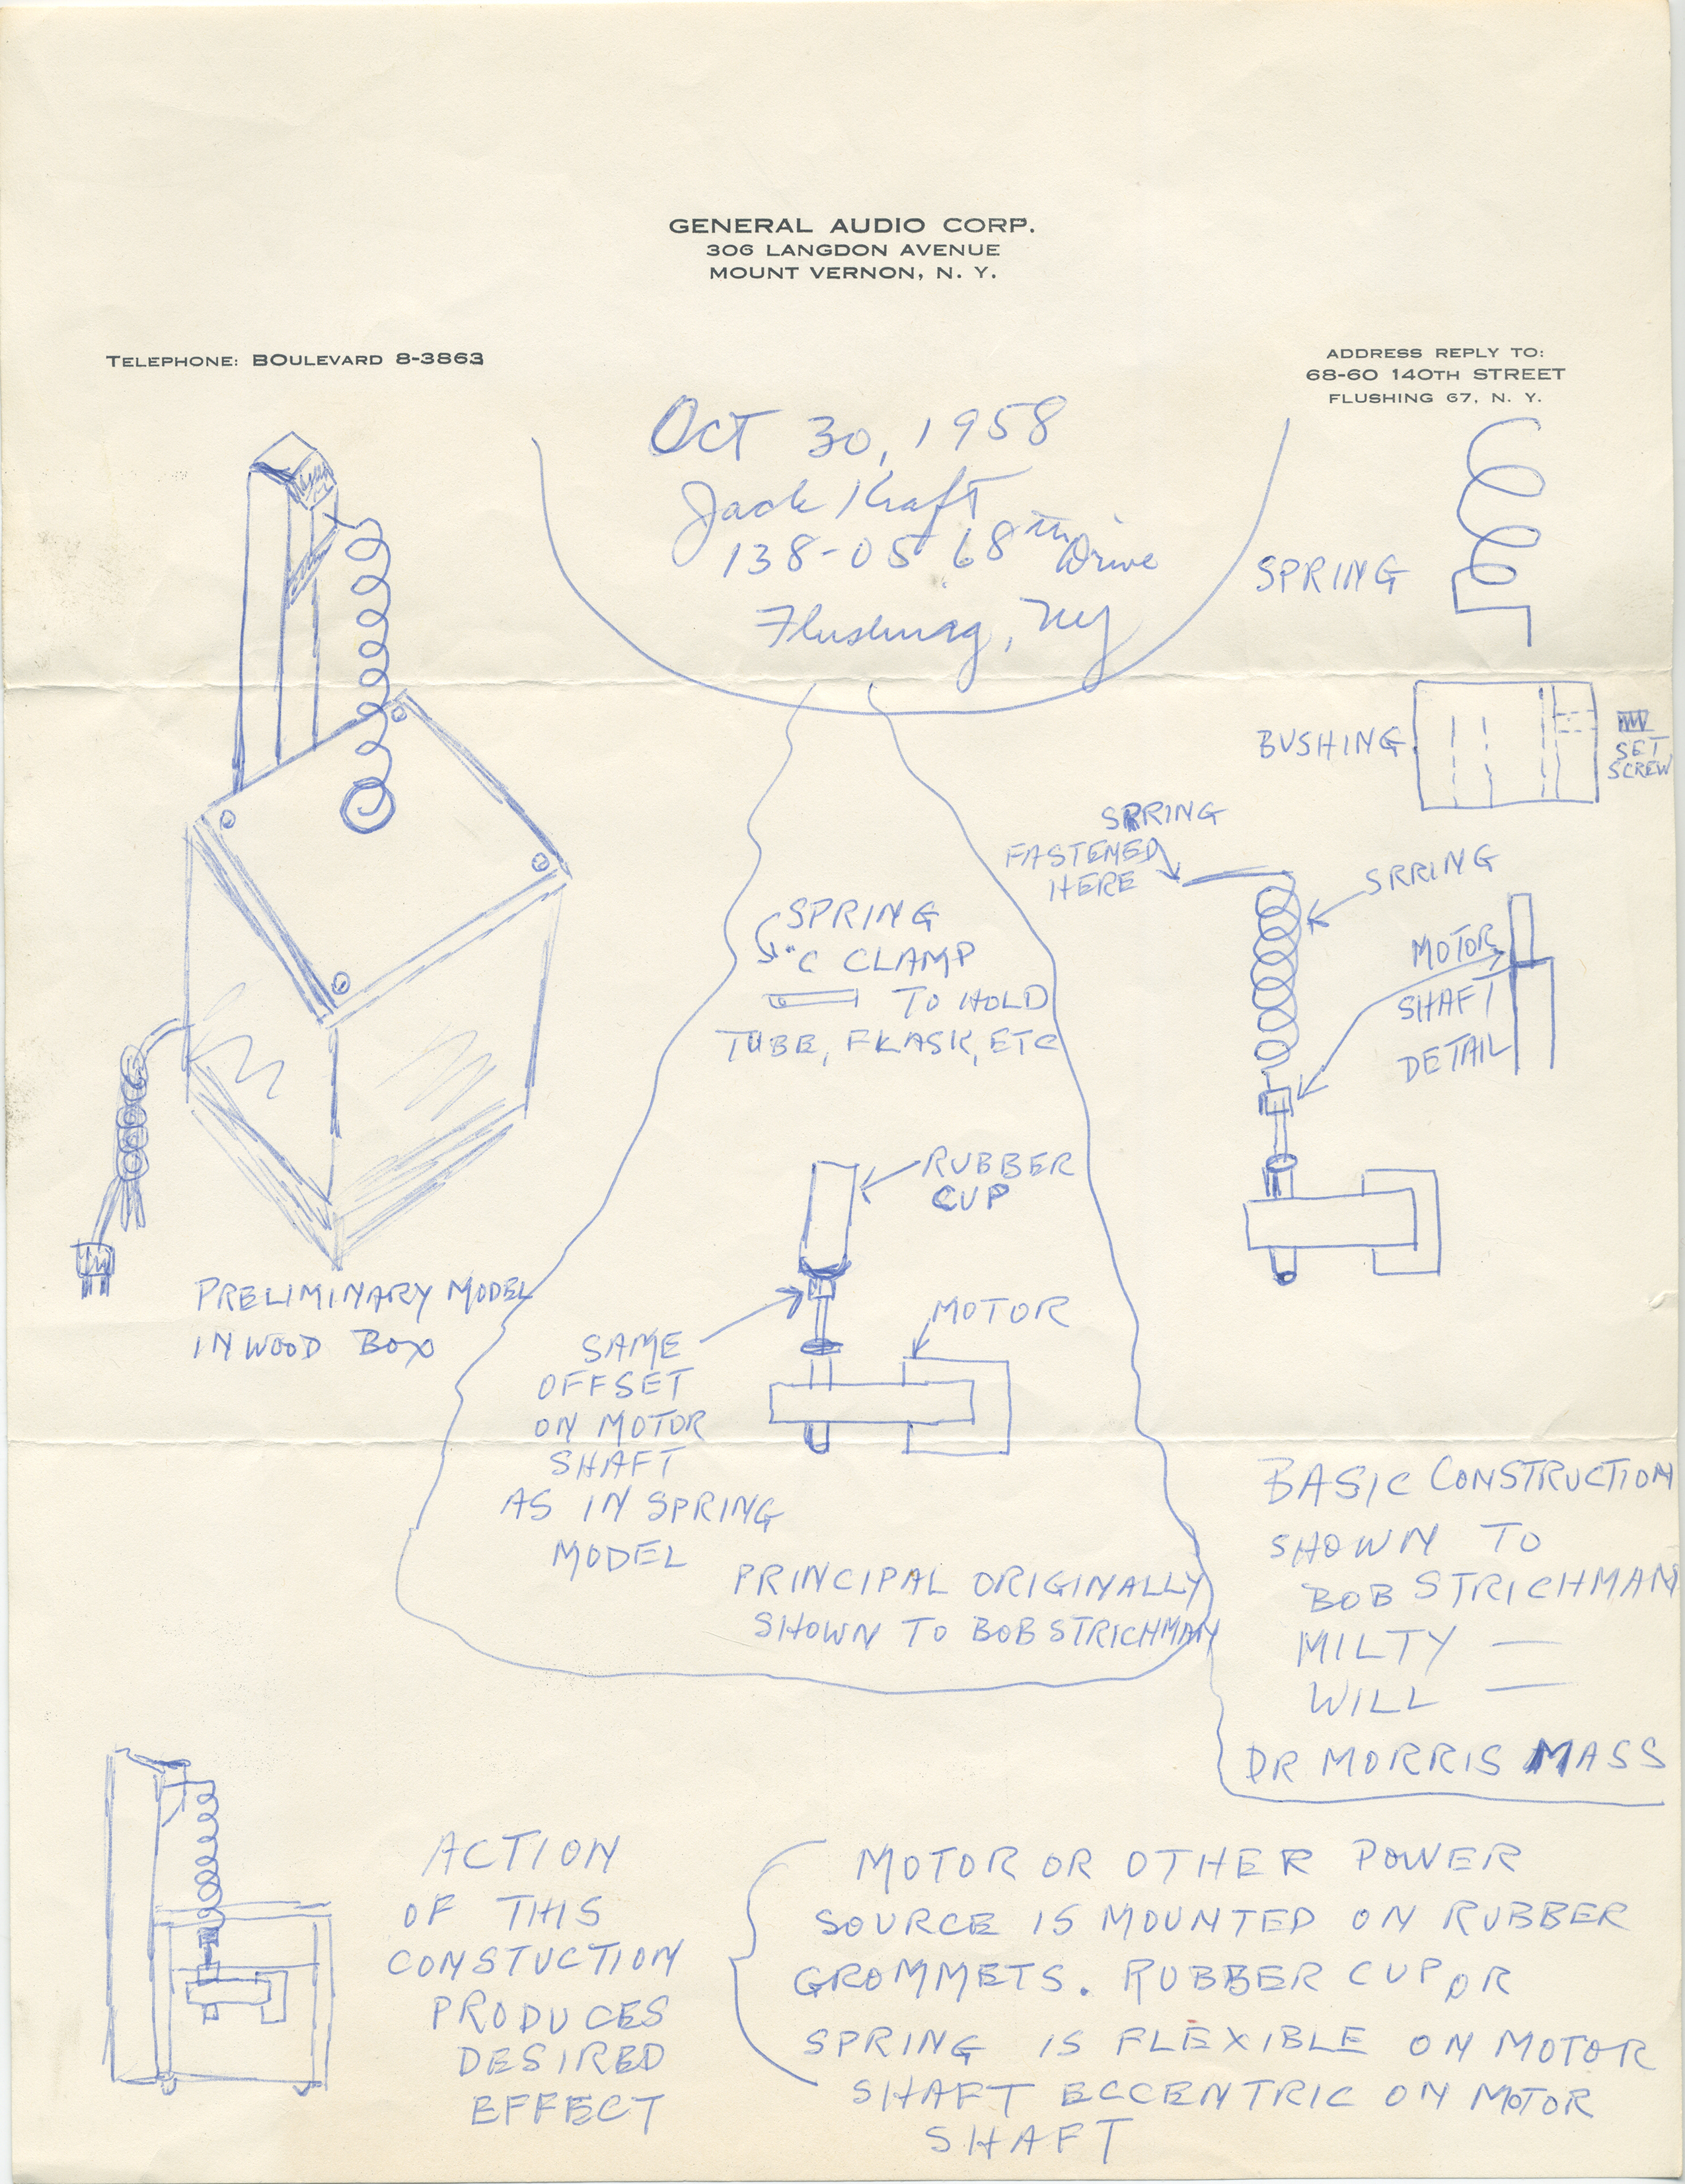 GENERAL AUDIO CORP.
306 LANGDON AVENUE
MOUNT VERNON, N. Y.
TELEPHONE: BOULEVARD 8-3863
ADDRESS REPLY TO:
68-60 140TH STREET
FLUSHING 67, N. Y.
OCT 30, 1958
Jack Kraft
138-05 68th Drive
Flushing, NY
SPRING
BUSHING
SET
SCREW
SPRING
FASTENED
HERE
SRRING
MOTOR
SHAFT
DETAIL
SPRING
"C CLAMP
TO HOLD
TUBE, FLASK, ETC
RUBBER
CUP
MOTOR
SAME
OFFSET
ON MOTOR
SHAFT
AS IN SPRING
MODEL
PRINCIPAL ORIGINALLY
SHOWN TO BOB STRICHMAN
PRELIMINARY MODEL
IN WOOD BOX
BASIC CONSTRUCTION
SHOWN TO
BOB STRICHMAN
MILTY —
WILL —
DR MORRIS MASS
ACTION
OF THIS
CONSTUCTION
PRODUCES
DESIRED
EFFECT
MOTOR OR OTHER POWER
SOURCE IS MOUNTED ON RUBBER
GROMMETS. RUBBER CUP OR
SPRING IS FLEXIBLE ON MOTOR
SHAFT ECCENTRIC ON MOTOR
SHAFT